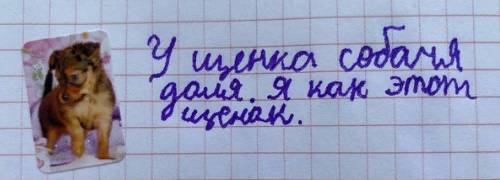 У щенка собачя
доля. Я как этот
щенак.